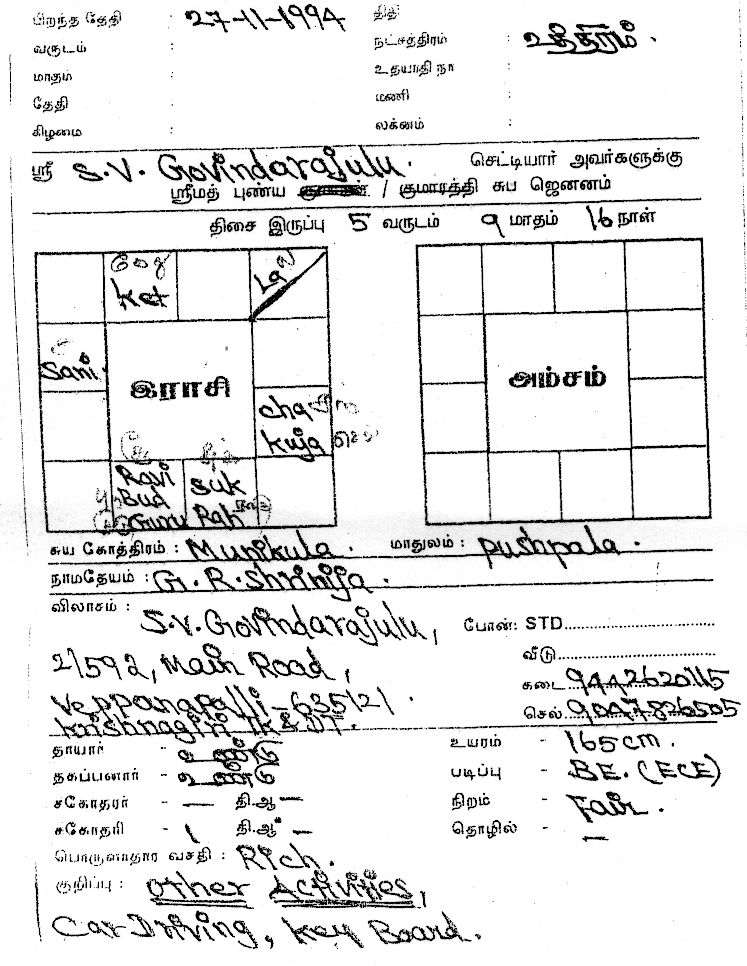 பிறந்த தேதி : 27-11-1994 திதி
வருடம் : நட்சத்திரம் : உத்திரம்.
மாதம் : உதயாதி நா
தேதி : மணி
கிழமை : லக்னம் :
ஸ்ரீ S.V. Govindarajulu. செட்டியார் அவர்களுக்கு
ஸ்ரீமத் புண்ய / குமாரத்தி சுப ஜெனனம்
திசை இருப்பு 5 வருடம் 9 மாதம் 16 நாள்
ket
La
Sani.
இராசி
அம்சம்
cha
kuja செவ்
Ravi
Bud
Guru
suk
Rah
சுய கோத்திரம் : Munikula. மாதுலம் : pushpala.
நாமதேயம் : G.R. Shrinija.
விலாசம் :
S.V. Govindarajulu, போன்: STD
2/592, Main Road, வீடு
Veppanapalli - 635121 கடை 9442620115
krishnagiri TK & DT. செல் 9047826505
தாயார் - உண்டு உயரம் - 165cm.
தகப்பனார் - உண்டு படிப்பு - BE. (ECE)
சகோதரர் - — தி.ஆ — நிறம் - Fair.
சகோதரி - 1 தி.ஆ — தொழில் - —
பொருளாதார வசதி : Rich.
குறிப்பு : Other Activities,
Car Driving, Key Board.